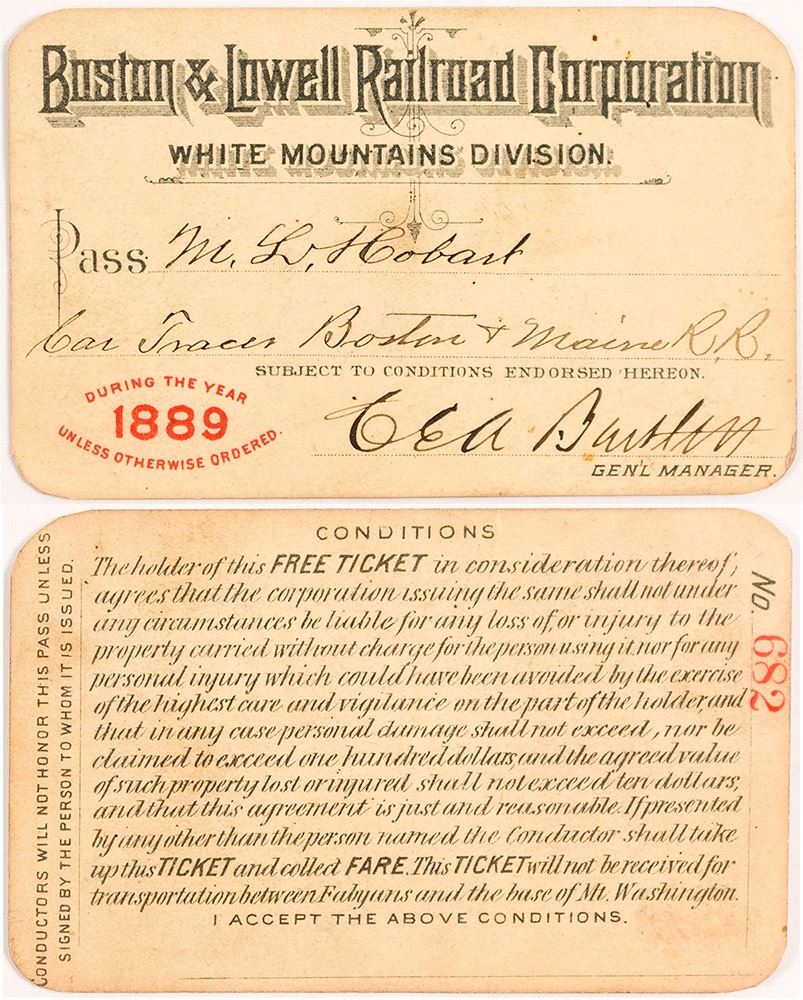 Boston & Lowell Railroad Corporation
WHITE MOUNTAINS DIVISION.
Pass M. L. Hobart
Car Tracer Boston & Maine R.R.
SUBJECT TO CONDITIONS ENDORSED HEREON.
DURING THE YEAR
1889
UNLESS OTHERWISE ORDERED.
C E A Bartlett
GEN'L MANAGER.
CONDITIONS
The holder of this FREE TICKET in consideration thereof,
agrees that the corporation issuing the same shall not under
any circumstances be liable for any loss of, or injury to the
property carried without charge for the person using it, nor for any
personal injury which could have been avoided by the exercise
of the highest care and vigilance on the part of the holder, and
that in any case personal damage shall not exceed, nor be
claimed to exceed one hundred dollars, and the agreed value
of such property lost or injured shall not exceed ten dollars,
and that this agreement is just and reasonable. If presented
by any other than the person named the Conductor shall take
up this TICKET and collect FARE. This TICKET will not be received for
transportation between Fabyans and the base of Mt. Washington.
I ACCEPT THE ABOVE CONDITIONS.
CONDUCTORS WILL NOT HONOR THIS PASS UNLESS
SIGNED BY THE PERSON TO WHOM IT IS ISSUED.
No. 682